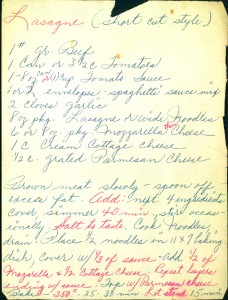 Lasagne (short cut style)
1# gr. Beef
1 Can or 3 1/2 c Tomatoes
1-8 oz can (1) cup Tomato Sauce
2 envelopes - spaghetti sauce mix
2 cloves garlic
8 oz pkg. Lasagne or Wide Noodles
6 or 8 oz pkg. Mozzarella Cheese
1 c Cream Cottage Cheese
1/2 c. grated Parmesan Cheese
Brown meat slowly - spoon off
excess fat. Add: next 4 ingredients
cover simmer 40 min. stir occas-
ionally. Salt to taste. Cook Noodles,
drain! Place 1/2 noodles in 11 x 7 baking
dish, Cover w/ 1/3 of sauce - Add 1/2 of
Mozarella & 1/2 Cottage Cheese. Repeat layers
ending w/ sauce. Top w/ Parmesan Cheese
Bake - 350° - 25-30 min Let stand 15 min